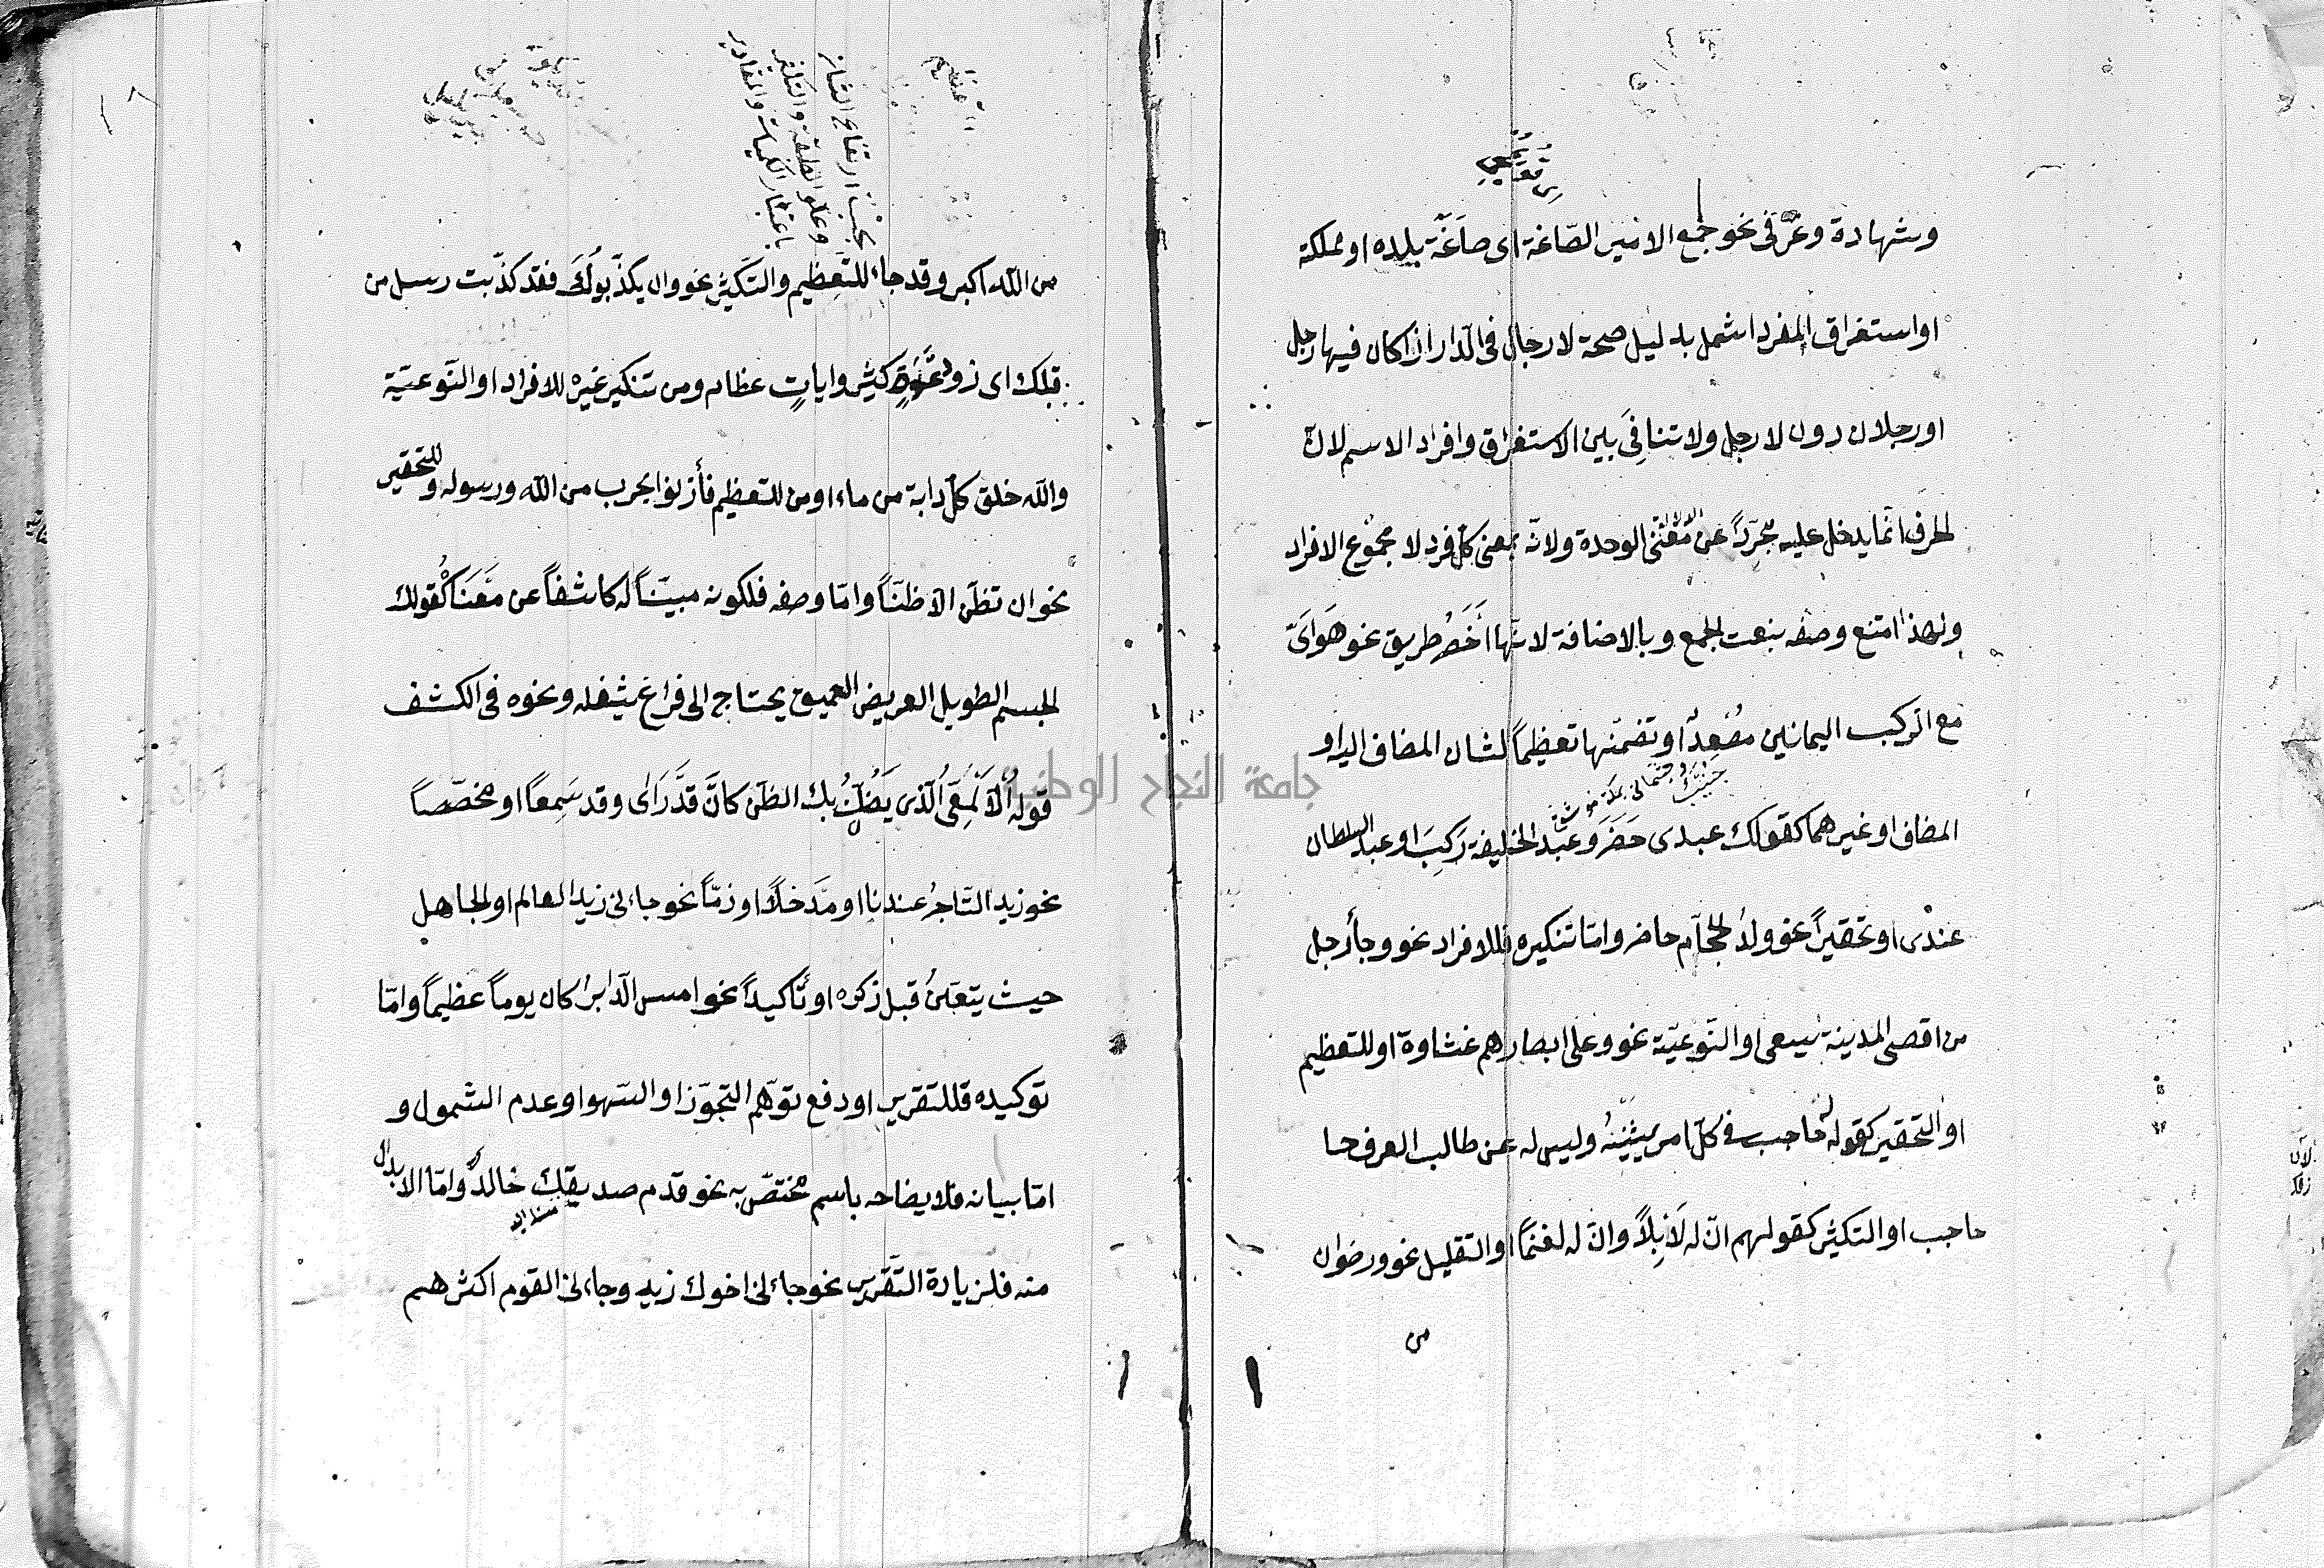 وشهادة وعرفى نحو جمع الامير الصّاغة اى صاغَة بلده او مملكته
او استغراق المفرد اشمل بدليل صحة لا رجال فى الدّار اذا كان فيها رجل
او رجلان دون لا رجل ولا تنافِىَ بين الاستغراق وافراد الاسم لانّ
الحرف انّما يدخل عليه مجرّداً عن معنى الوحدة ولانّه بمعنى كلّ فرد لا مجموع الافراد
ولهذا امتنع وصفه بنعت الجمع وبالاضافة لانّها اَخَصُر طريق نحو هَوَاىَ
مع الركب اليمانين مُصْعِدٌ او تضمّنها تعظيماً لشان المضاف اليه او
جَنِيبٌ وجثمانى بمكة موثق
المضاف او غيرهما كقولك عبدى حَضَرَ وعبد الخليفة رَكِبَ او عبد السلطان
عندى او تحقيراً نحو ولدُ الحجّام حاضر وامّا تنكيره فللافراد نحو وجاء رجل
من اقصى المدينة يسعى او النّوعيّة نحو وعلى ابصارهم غشاوة او للتعظيم
او التحقير كقوله له حاجب فى كلّ امر يشينهُ وليس له عن طالب العرف حا
حاجب او التكثير كقولهم انّ له لَاِبِلاً وانّ له لغنماً او التقليل نحو ورضوان
من
بحسب ارتفاع الشان
وعلو الطبقة والتكثير
باعتبار الكميات والمقادير
من اللّه اكبر وقد جاء للتّعظيم والتّكثير نحو وان يكذّبُوكَ فقد كذّبت رسل من
قبلك اى ذو عدد كثير وايات عظام ومن تنكير غيره للافراد او النّوعيّة
واللّه خلق كلّ دابة من ماء او من للتعظيم فأذنوا بحرب من اللّه ورسوله وللتحقير
نحو ان نظنّ الاّ ظنّاً وامّا وصفه فلكونه مبيّناً له كاشفاً عن مَعْنَاهُ كقولك
الجسم الطويل العريض العميق يحتاج الى فراغ يشغله ونحوه فى الكشف
قوله اَلْاَلْمَعِىُّ الّذى يَظُنُّ بك الظّنّ كانّ قد رَاَى وقد سَمِعاً او مخصّصاً
نحو زيد التّاجرُ عندنا او مَدحاً او ذمّاً نحو جاءنى زيد العالم او الجاهل
حيث يتعيّنُ قبل ذكره او تأكيداً نحو امس الدّابرُ كان يوماً عظيماً وامّا
توكيده فللتقرير او دفع توهّم التجوّز او السّهو او عدم الشمول و
امّا بيانه فلايضاحه باسم مختصّ به نحو قدم صديقك خالدٌ وامّا الابدال
منه فلزيادة التقرير نحو جاءنى اخوك زيد وجاءنى القوم اكثرهم
جامعة النجاح الوطنية